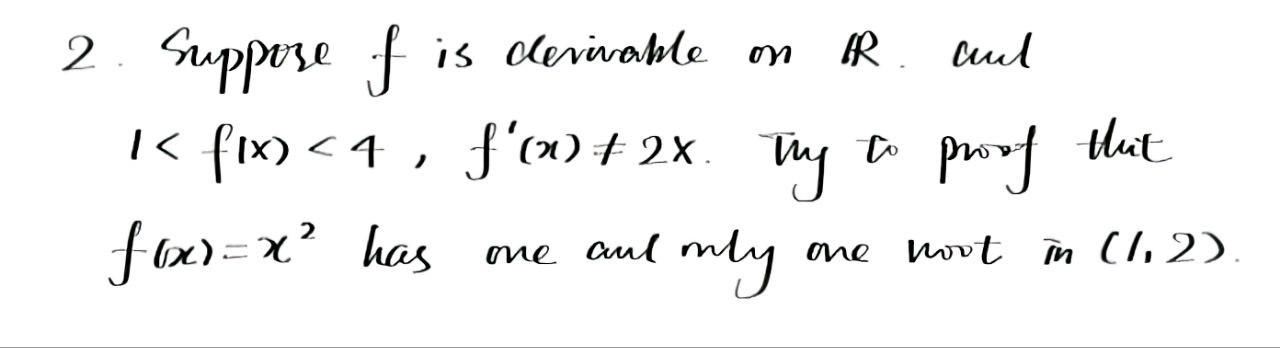 2. Suppose f is derivable on ℝ. and
1 < f(x) < 4, f'(x) ≠ 2x. Try to proof that
f(x) = x² has one and only one root in (1, 2).